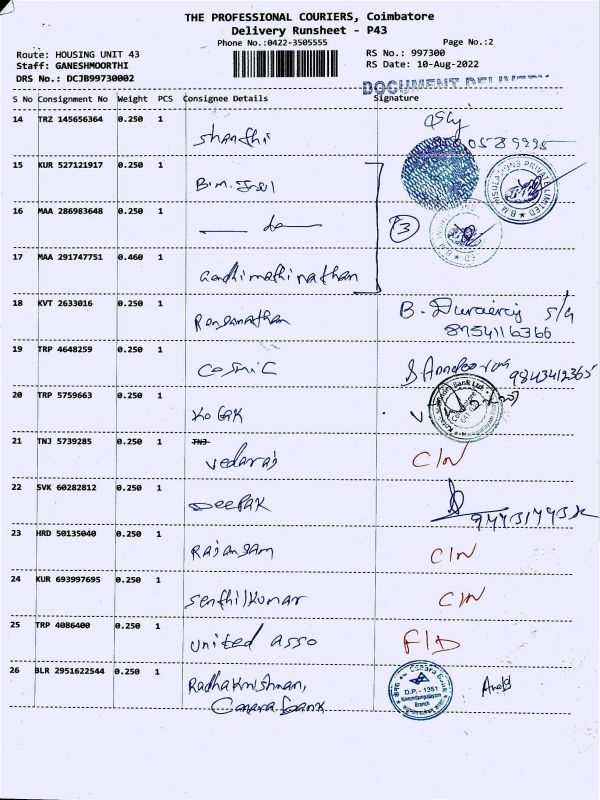 THE PROFESSIONAL COURIERS, Coimbatore
Delivery Runsheet - P43
Phone No.:0422-3505555
Page No.:2
Route: HOUSING UNIT 43
RS No.: 997300
Staff: GANESHMOORTHI
RS Date: 10-Aug-2022
DRS No.: DCJB99730002
DOCUMENT DELIVERY
S No Consignment No Weight PCS Consignee Details Signature
14 TRZ 145656364 0.250 1
Shanthi
15 KUR 527121917 0.250 1
B.M. Insl
B.M. INSULATIONS PRIVATE LIMITED
16 MAA 286983648 0.250 1
— do —
3
17 MAA 291747751 0.460 1
Gandhimathinathan
18 KVT 2633016 0.250 1
Renganathan
B. Durairaj S/G
8754116366
19 TRP 4648259 0.250 1
Cosmic
9843412365
20 TRP 5759663 0.250 1
Kotak
21 TNJ 5739285 0.250 1 TNJ
Vedaraj C/N
22 SVK 60282812 0.250 1
Deepak
23 HRD 50135040 0.250 1
Rajangam C/N
24 KUR 693997695 0.250 1
Senthilkumar C/N
25 TRP 4086400 0.250 1
United asso F/D
26 BLR 2951622544 0.250 1
Radhakrishnan,
Canara bank
Canara Bank
D.P. - 1251
Kavundampalayam
Branch